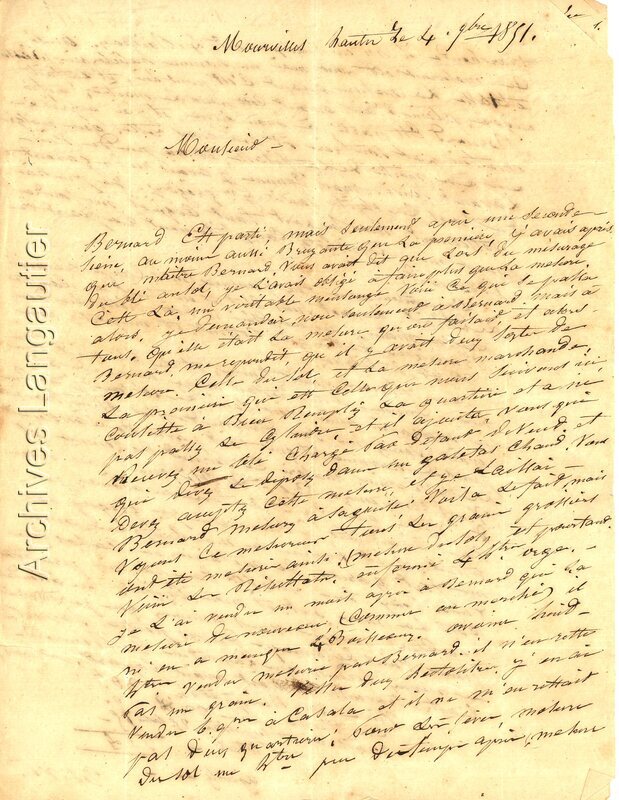 Mourvilles hautes le 4. 9bre 1851.
1.
Monsieur
Bernard Est parti mais seulement après une seconde
Scène, au moins aussi Bruyante que La première, j'avais appris
que maître Bernard Vous avait dit que Lors du mesurage
du blé au sol, je L'avais obligé à faire plus que La mesure,
C'est La, un véritable mensonge. Voici Ce qui se passa
alors, je demandai, non seulement à Bernard mais à
tous, Qu'elle était La mesure qu'on faisait et alors
Bernard me répondit, qu'il y avait deux sortes de
mesure. Celle du sol, et La mesure marchande,
La première que est Celle que nous suivons ici
Consiste à Bien Remplir La quartière et à ne
pas passer Le Cylindre et il ajouta, Vous qui
Recevez un blé Chargé
que devez Le déposer dans un galetas Chaud. Vous
Devez accepter Cette mesure, et je Laissai
Bernard mesurer à sa guise. Voilà Le fait, mais
Voyons Ce mesureur tous Les grains grossiers
ont été mesurés ainsi (mesure du sol) et pourtant
Voici Les Résultats. enfermé 4 hres orge. -
Je L'ai vendu un mois après à Bernard qui L'a
mesuré de nouveau (Comme au marché) il
m'en a manqué 4 Boisseaux. avoine
hres vendu mesuré par Bernard il n'en reste
Pas un grain. deux hectolitres, j'en ai
vendu à Casala et il ne m'en restait
pas deux quartières. Pour Les fèves, mesure
du sol un hre peu de temps après, mesure
Archives Langautier